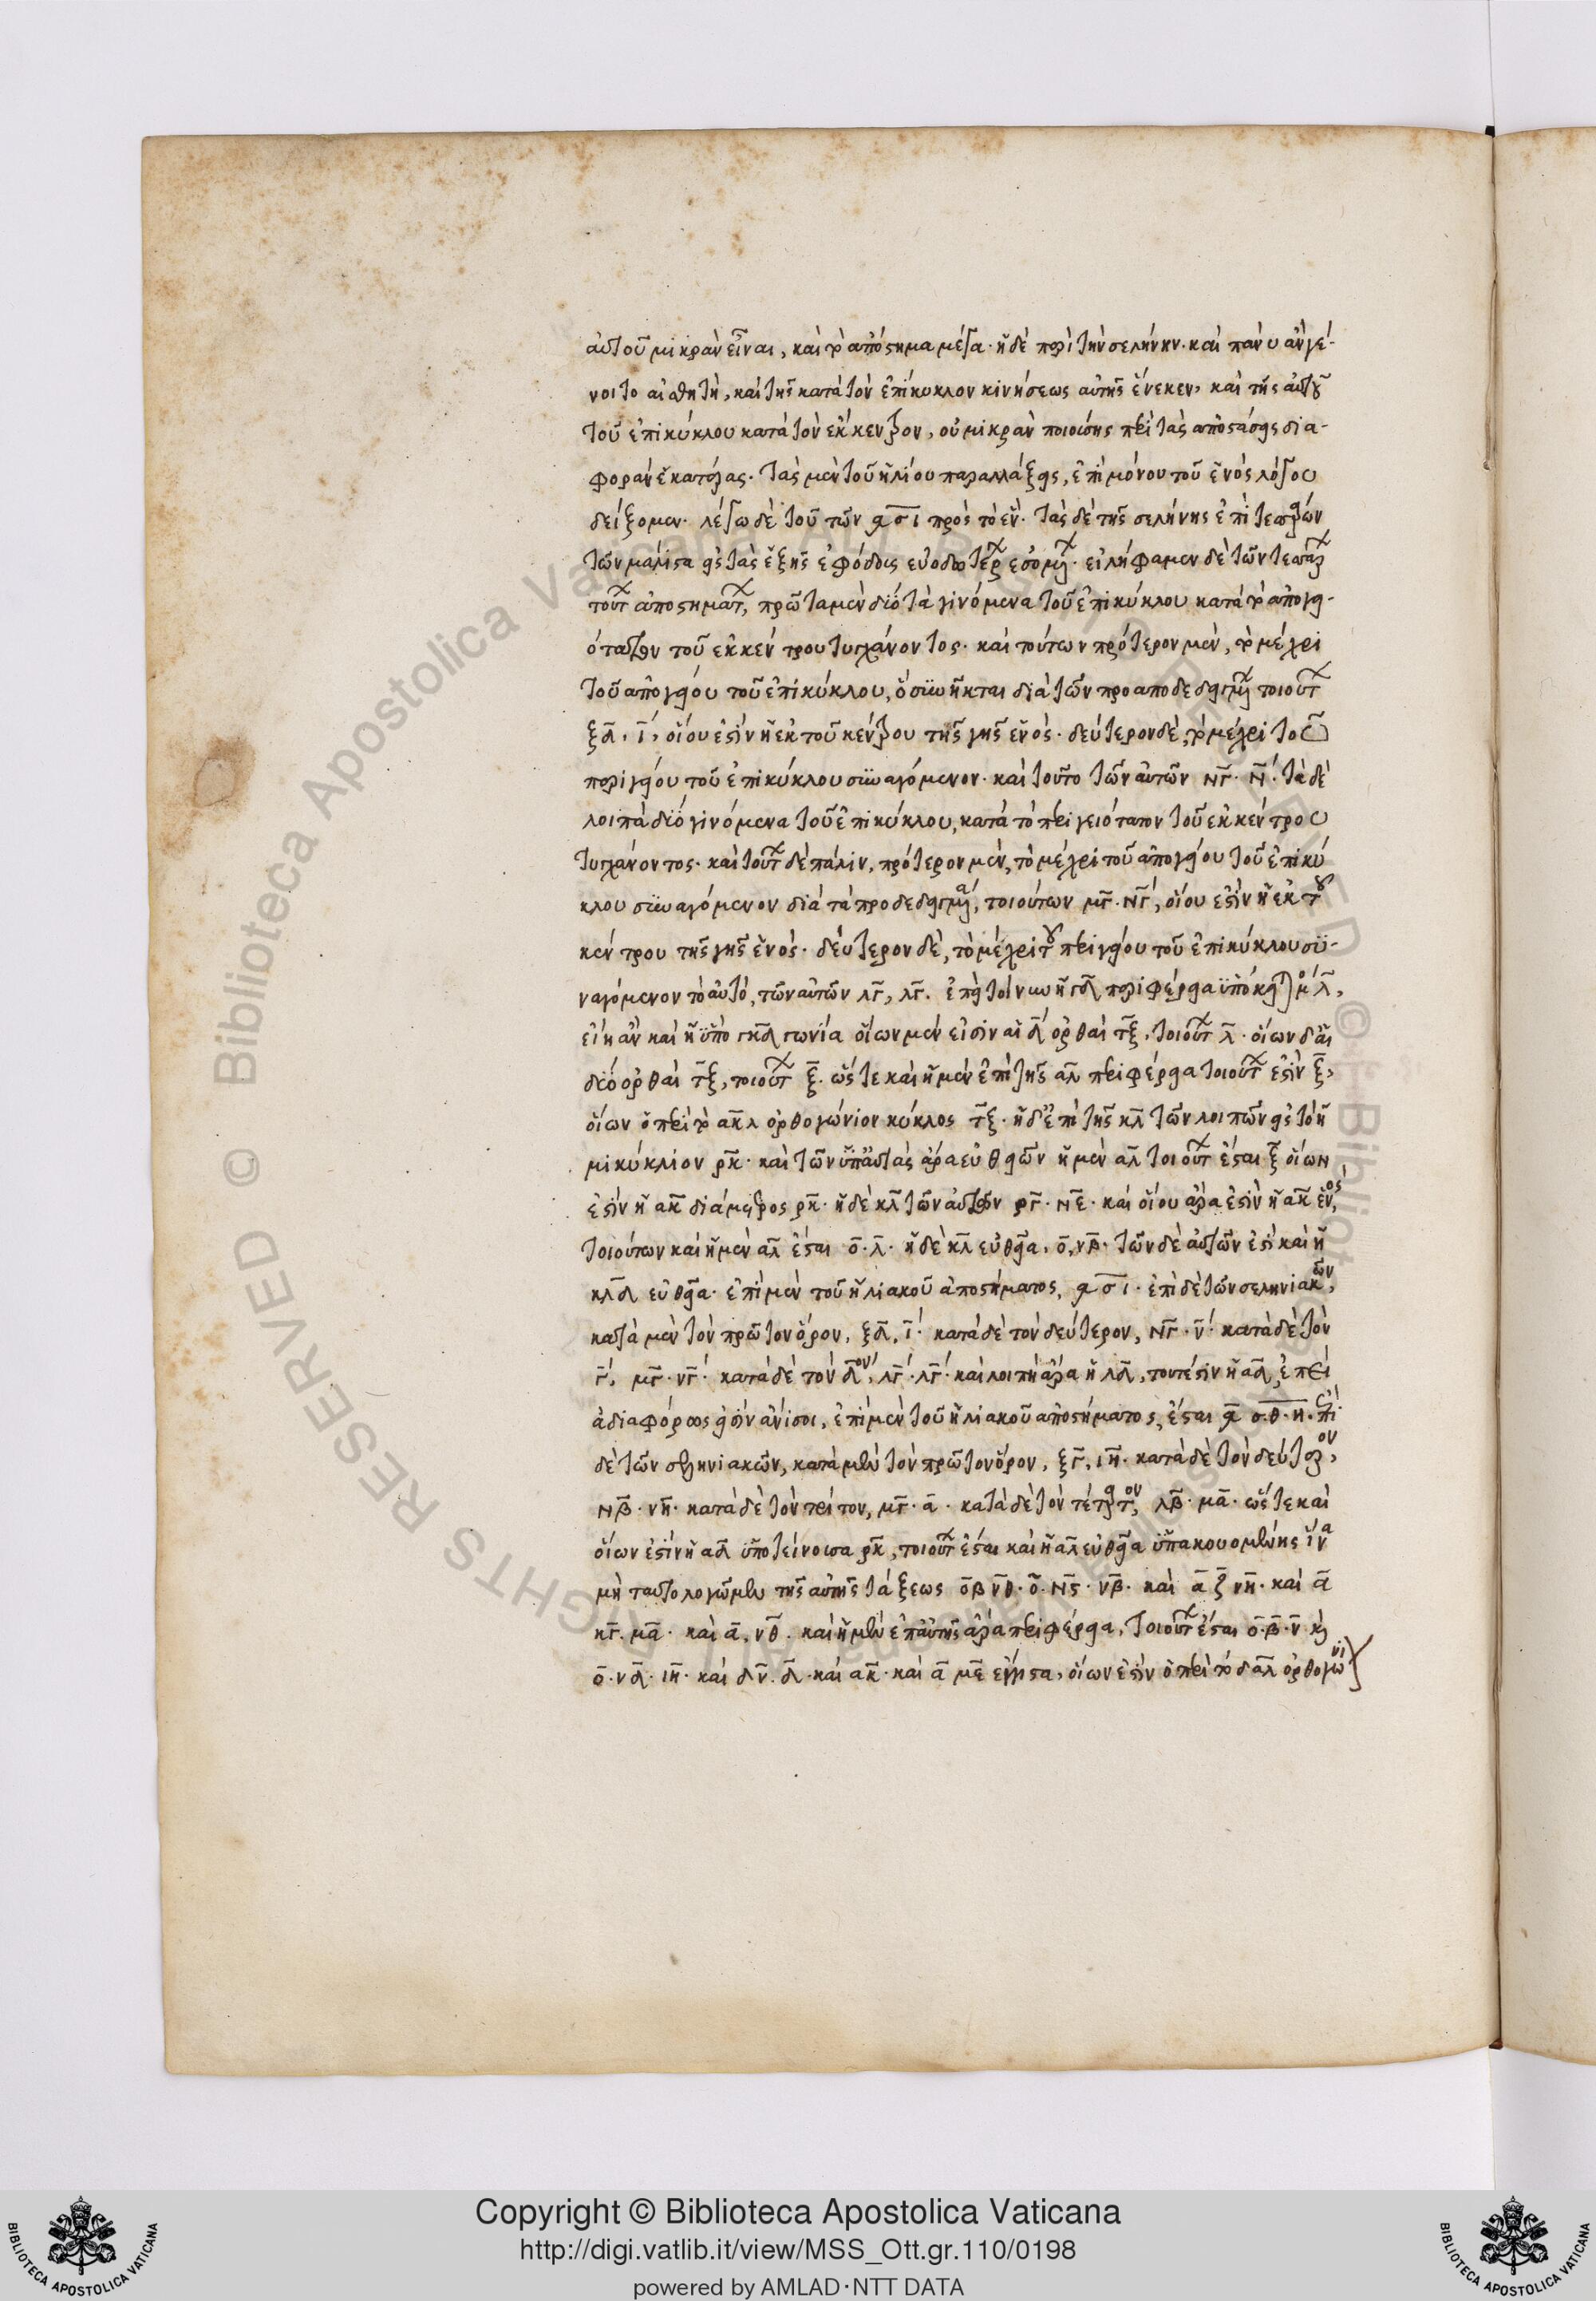 αὐτοῦ μικρὰν εἶναι, καὶ τὸ ἀπόστημα μέγα· ἡ δὲ περὶ τὴν σελήνην· καὶ πάνυ ἂν γέ-
νοιτο αἰσθητὴ, καὶ τῆς κατὰ τὸν ἐπίκυκλον κινήσεως αὐτῆς ἕνεκεν, καὶ τῆς αὐτοῦ
τοῦ ἐπικύκλου κατὰ τὸν ἔκκεντρον, οὐ μικρὰν ποιούσης περὶ τὰς ἀποστάσεις δια-
φορὰν ἑκατέρας. τὰς μὲν τοῦ ἡλίου παραλλάξεις, ἐπὶ μόνου τοῦ ἑνὸς λόγου
δείξομεν. λέγω δὲ τοῦ τῶν ͵α σ ι πρὸς τὸ ἕν. τὰς δὲ τῆς σελήνης ἐπὶ τεσσάρων
τῶν μάλιστα εἰς τὰς ἑξῆς ἐφόδους εὐοδωτέρων ἐσομένων. εἰλήφαμεν δὲ τῶν τεσσάρων
τούτων ἀποστημάτων, πρῶτα μὲν δύο τὰ γινόμενα τοῦ ἐπικύκλου κατὰ τὸ ἀπογει-
ότατον τοῦ ἐκκέντρου τυγχάνοντος. καὶ τούτων πρότερον μὲν, τὸ μέχρι
τοῦ ἀπογείου τοῦ ἐπικύκλου, ὃ συνῆκται διὰ τῶν προαποδεδειγμένων τοιούτων
ξδ, ι, οἵου ἐστὶν ἡ ἐκ τοῦ κέντρου τῆς γῆς ἑνός. δεύτερον δὲ, τὸ μέχρι τοῦ
περιγείου τοῦ ἐπικύκλου συναγόμενον. καὶ τοῦτο τῶν αὐτῶν νγ. ν. τὰ δὲ
λοιπὰ δύο γινόμενα τοῦ ἐπικύκλου, κατὰ τὸ περιγειότατον τοῦ ἐκκέντρου
τυγχάνοντος. καὶ τούτων δὲ πάλιν, πρότερον μὲν, τὸ μέχρι τοῦ ἀπογείου τοῦ ἐπικύ
κλου συναγόμενον διὰ τὰ προδεδειγμένα, τοιούτων μγ. νγ, οἵου ἐστὶν ἡ ἐκ τοῦ
κέντρου τῆς γῆς ἑνός. δεύτερον δὲ, τὸ μέχρι τοῦ περιγείου τοῦ ἐπικύκλου συ-
ναγόμενον τὸ αὐτό, τῶν αὐτῶν λγ, λγ. ἐπεὶ τοίνυν ἡ γδ περιφέρεια ὑπόκειται μο λ,
εἴη ἂν καὶ ἡ ὑπὸ γκδ γωνία οἵων μέν εἰσιν αἱ δ ὀρθαὶ τξ, τοιούτων λ. οἵων δ' αἱ
δύο ὀρθαὶ τξ, τοιούτων ξ. ὥστε καὶ ἡ μὲν ἐπὶ τῆς αλ περιφέρεια τοιούτων ἐστὶν ξ,
οἵων ὁ περὶ τὸ ακλ ὀρθογώνιον κύκλος τξ. ἡ δ' ἐπὶ τῆς κλ τῶν λοιπῶν εἰς τὸ ἡ
μικύκλιον ρκ. καὶ τῶν ὑπ' αὐτὰς ἄρα εὐθειῶν ἡ μὲν αλ τοιούτων ἔσται ξ οἵων
ἐστὶν ἡ ακ διάμετρος ρκ. ἡ δὲ κλ τῶν αὐτῶν ργ. νε. καὶ οἵου ἄρα ἐστὶν ἡ ακ ἑνός,
τοιούτων καὶ ἡ μὲν αλ ἔσται ο. λ. ἡ δὲ κλ εὐθεῖα. ο, νβ. τῶν δὲ αὐτῶν ἐστὶ καὶ ἡ
κλδ εὐθεῖα. ἐπὶ μὲν τοῦ ἡλιακοῦ ἀποστήματος, ͵α σ ι. ἐπὶ δὲ τῶν σεληνιακῶν,
κατὰ μὲν τὸν πρῶτον ὅρον, ξδ, ι. κατὰ δὲ τὸν δεύτερον, νγ. ν. κατὰ δὲ τὸν
γ, μγ. νγ. κατὰ δὲ τὸν δον, λγ. λγ. καὶ λοιπὴ ἄρα ἡ λδ, τουτέστιν ἡ αδ, ἐπεὶ
ἀδιαφόρως εἰσὶν ἄνισοι, ἐπὶ μὲν τοῦ ἡλιακοῦ ἀποστήματος, ἔσται ͵α σ. θ. η. ἐπὶ
δὲ τῶν σεληνιακῶν, κατὰ μὲν τὸν πρῶτον ὅρον, ξγ, ιη. κατὰ δὲ τὸν δεύτερον,
νβ. νη. κατὰ δὲ τὸν τρίτον, μγ. α. κατὰ δὲ τὸν τέταρτον, λβ. μα. ὥστε καὶ
οἵων ἐστὶν ἡ αδ ὑποτείνουσα ρκ, τοιούτων ἔσται καὶ ἡ αλ εὐθεῖα ὑπακουομένης ἵνα
μὴ ταυτολογῶμεν τῆς αὐτῆς τάξεως ο β νθ. ο. νϛ. νβ. καὶ α ζ νη. καὶ α
κγ. μα. καὶ α, νθ. καὶ ἡ μὲν ἐπ' αὐτῆς ἄρα περιφέρεια, τοιούτων ἔσται ο. β. ν καὶ
ο. νδ. ιη. καὶ δν. δ. καὶ ακ. καὶ α με ἔγγιστα, οἵων ἐστὶν ὁ περὶ τὸ δαλ ὀρθογώνι
Copyright © Biblioteca Apostolica Vaticana
http://digi.vatlib.it/view/MSS_Ott.gr.110/0198
powered by AMLAD·NTT DATA